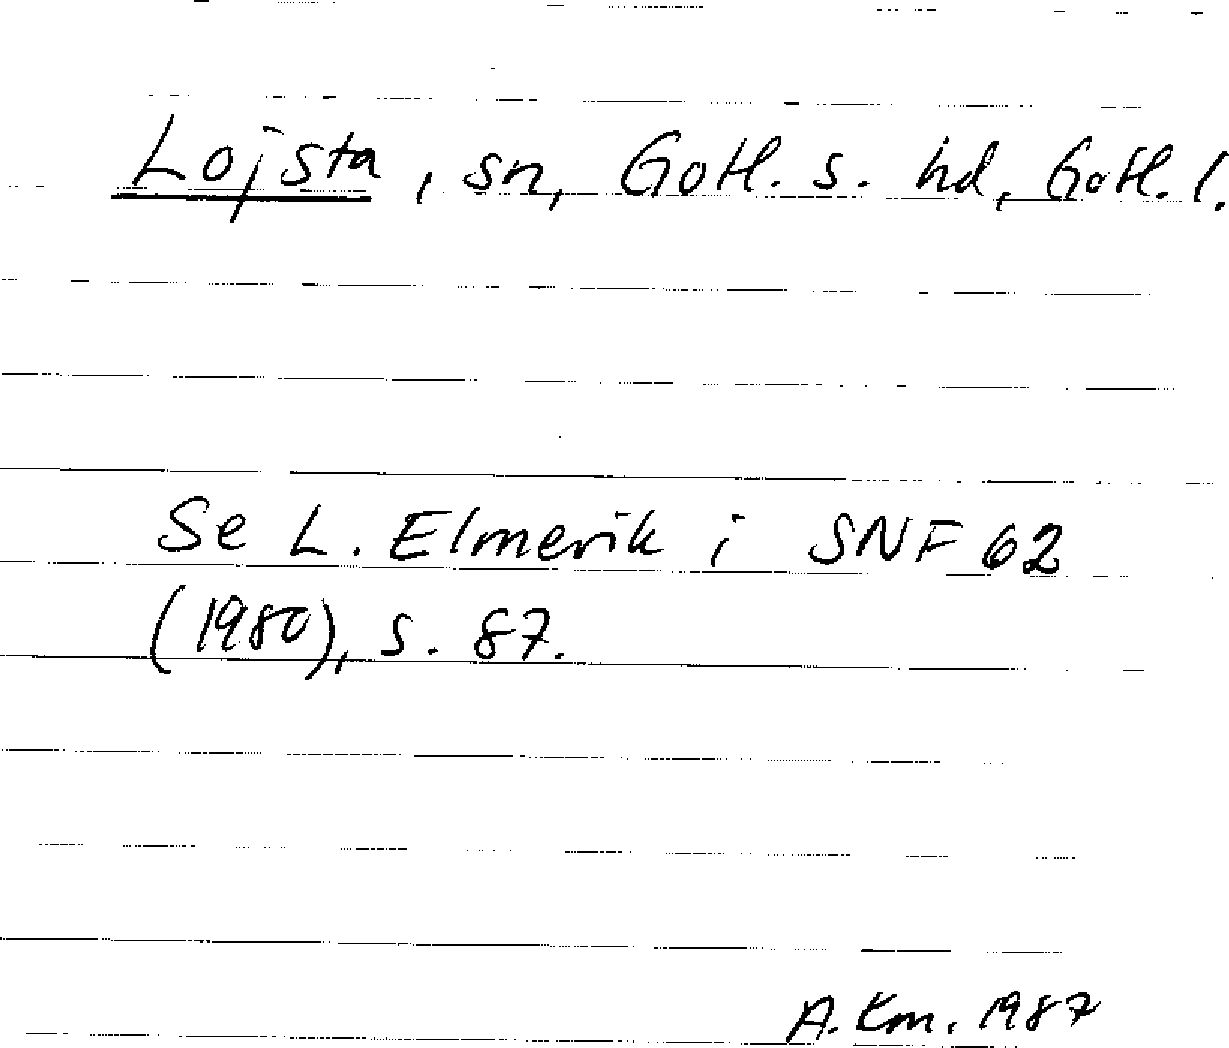 Lojsta, sn, Gotl. s. hd, Gotl. l.
Se L. Elmevik i SNF 62
(1980), s. 87.
A. Km. 1987